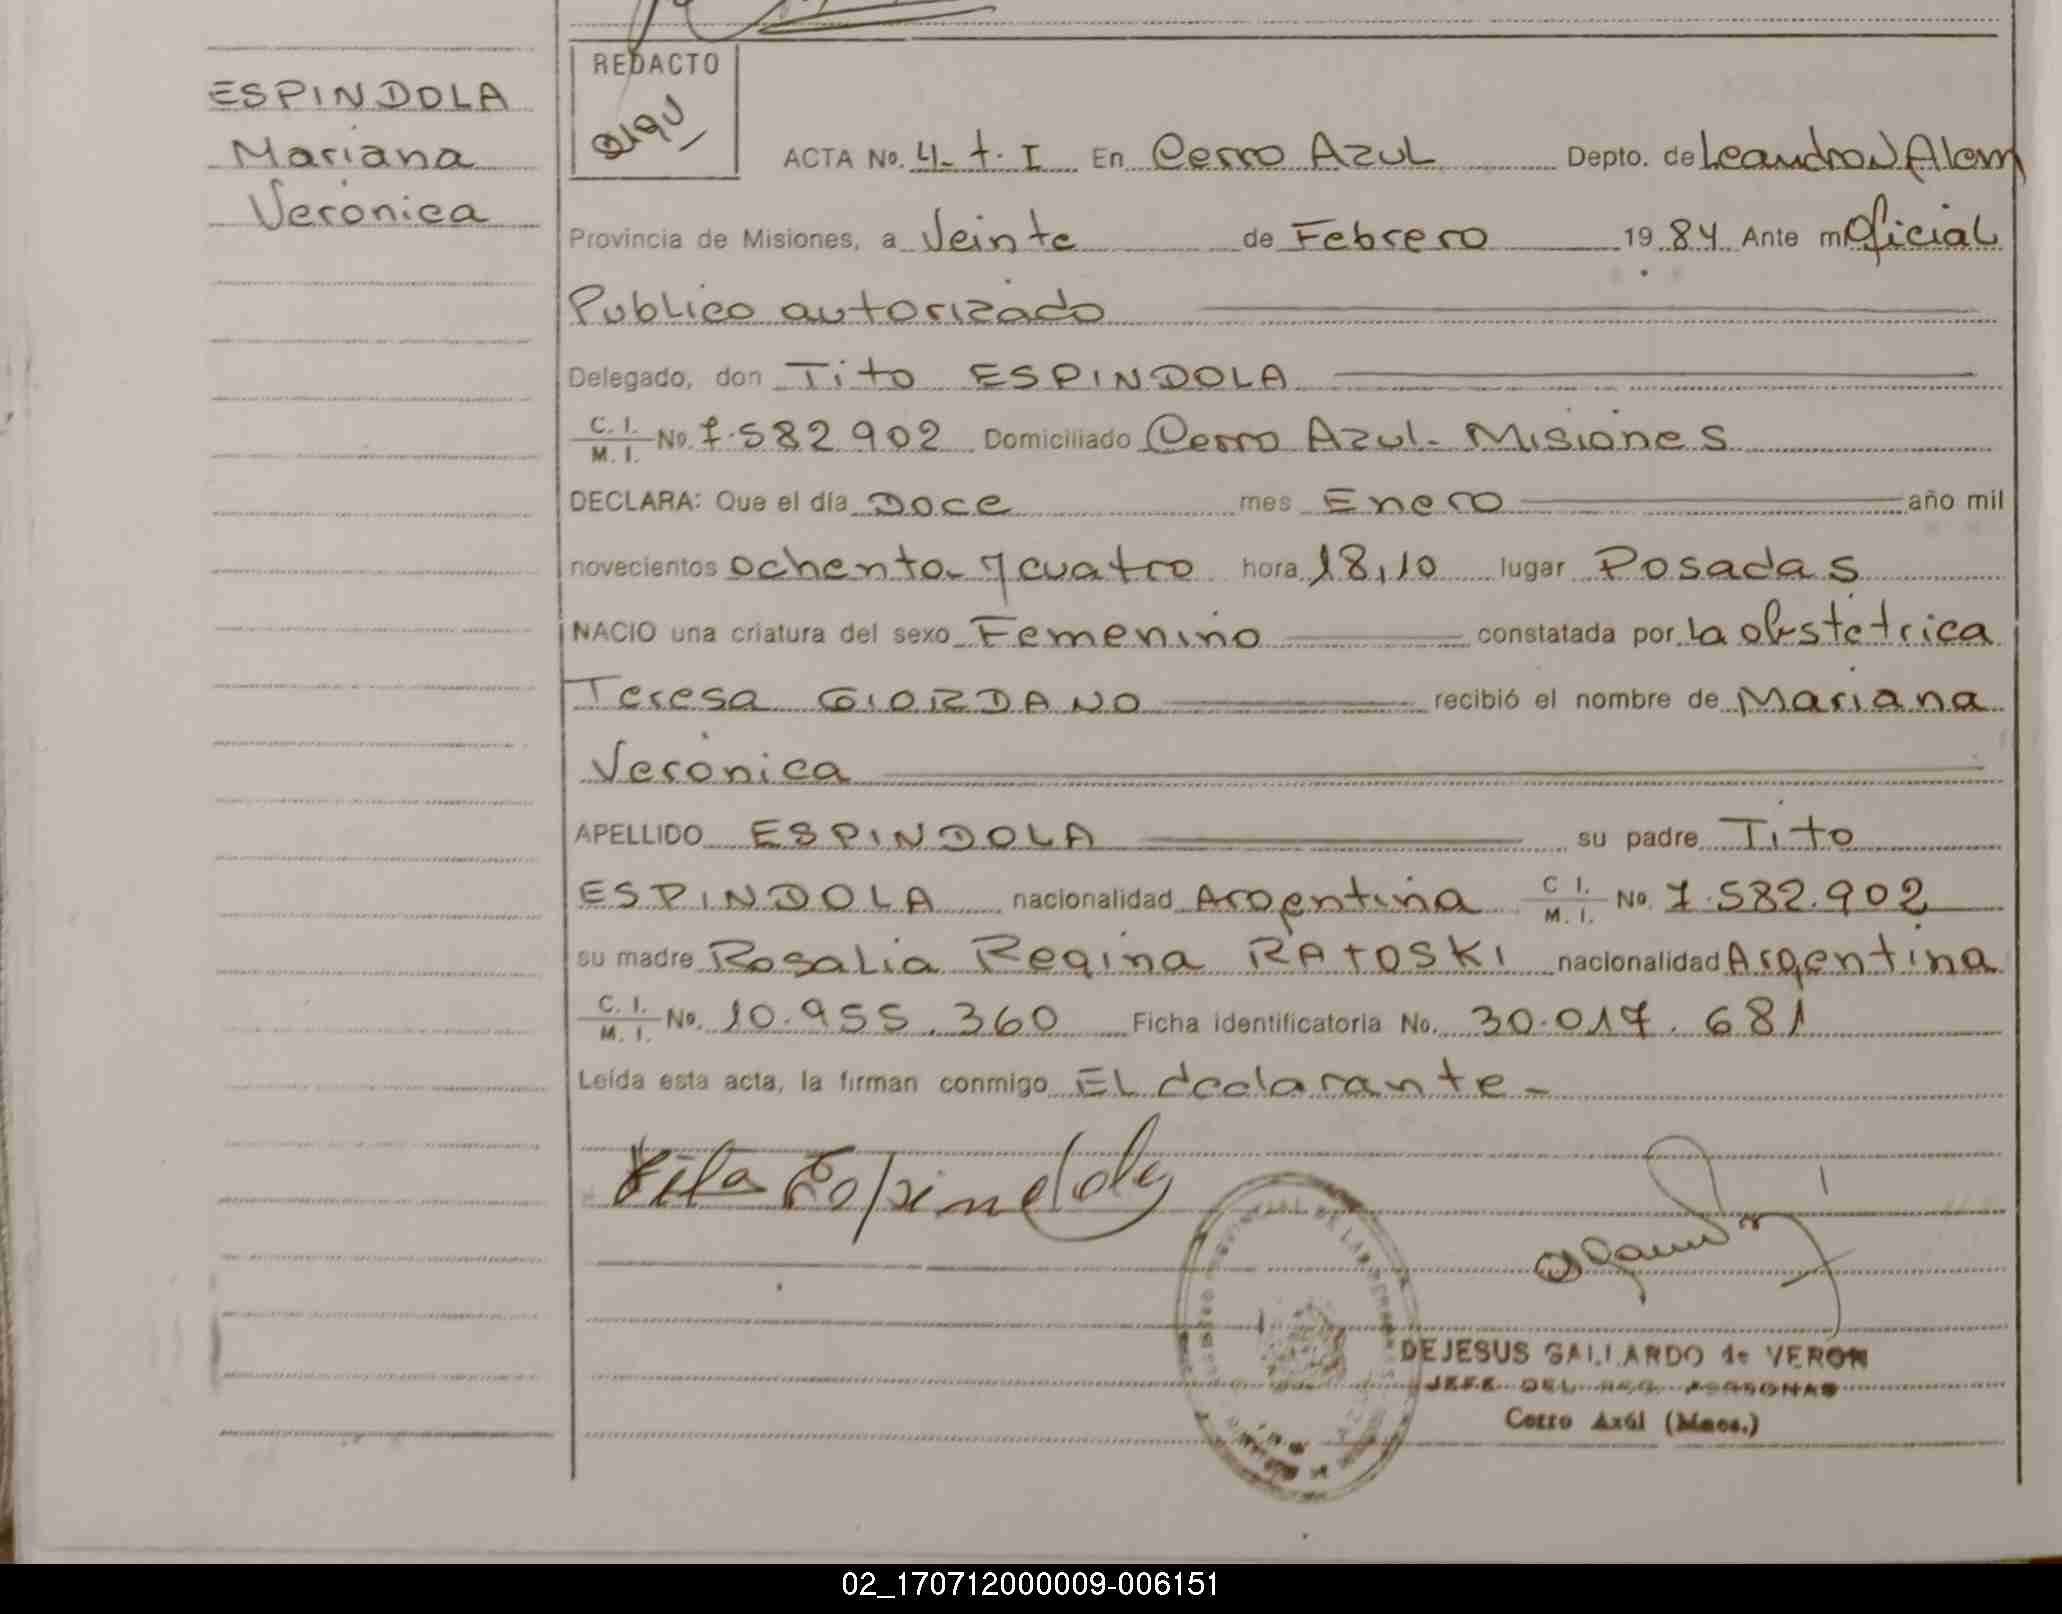 ESPINDOLA
Mariana
Verónica
REDACTO
ACTA No. 4. t. I En Cerro AZUL Depto. de Leandro N Alem
Provincia de Misiones, a Veinte de Febrero 1984 Ante mi Oficial
Publico autorizado
Delegado, don Tito ESPINDOLA
C. I.
M. I. No. 7.582902 Domiciliado Cerro Azul - Misiones
DECLARA: Que el día Doce mes Enero año mil
novecientos ochenta y cuatro hora 18,10 lugar Posadas
NACIO una criatura del sexo Femenino constatada por La obstetrica
Teresa GIORDANO recibió el nombre de Mariana
Verónica
APELLIDO ESPINDOLA su padre Tito
ESPINDOLA nacionalidad Argentina C I. M. I. No. 7.582.902
su madre Rosalia Regina RATOSKI nacionalidad Argentina
C. I.
M. I. No. 10.955.360 Ficha identificatoria No. 30.017.681
Leída esta acta, la firman conmigo El declarante -
Tito Espindola
DEJESUS GALLARDO de VERON
JEFE DEL REG. PERSONAS
Cerro Azúl (Mnes.)
02_170712000009-006151